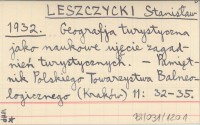 LESZCZYCKI Stanisław
1932. Geografja turystyczna
jako naukowe ujęcie zagad-
nień turystycznych. - Pamięt-
nik Polskiego Towarzystwa Balneo-
logicznego (Kraków) 11: 32-35.